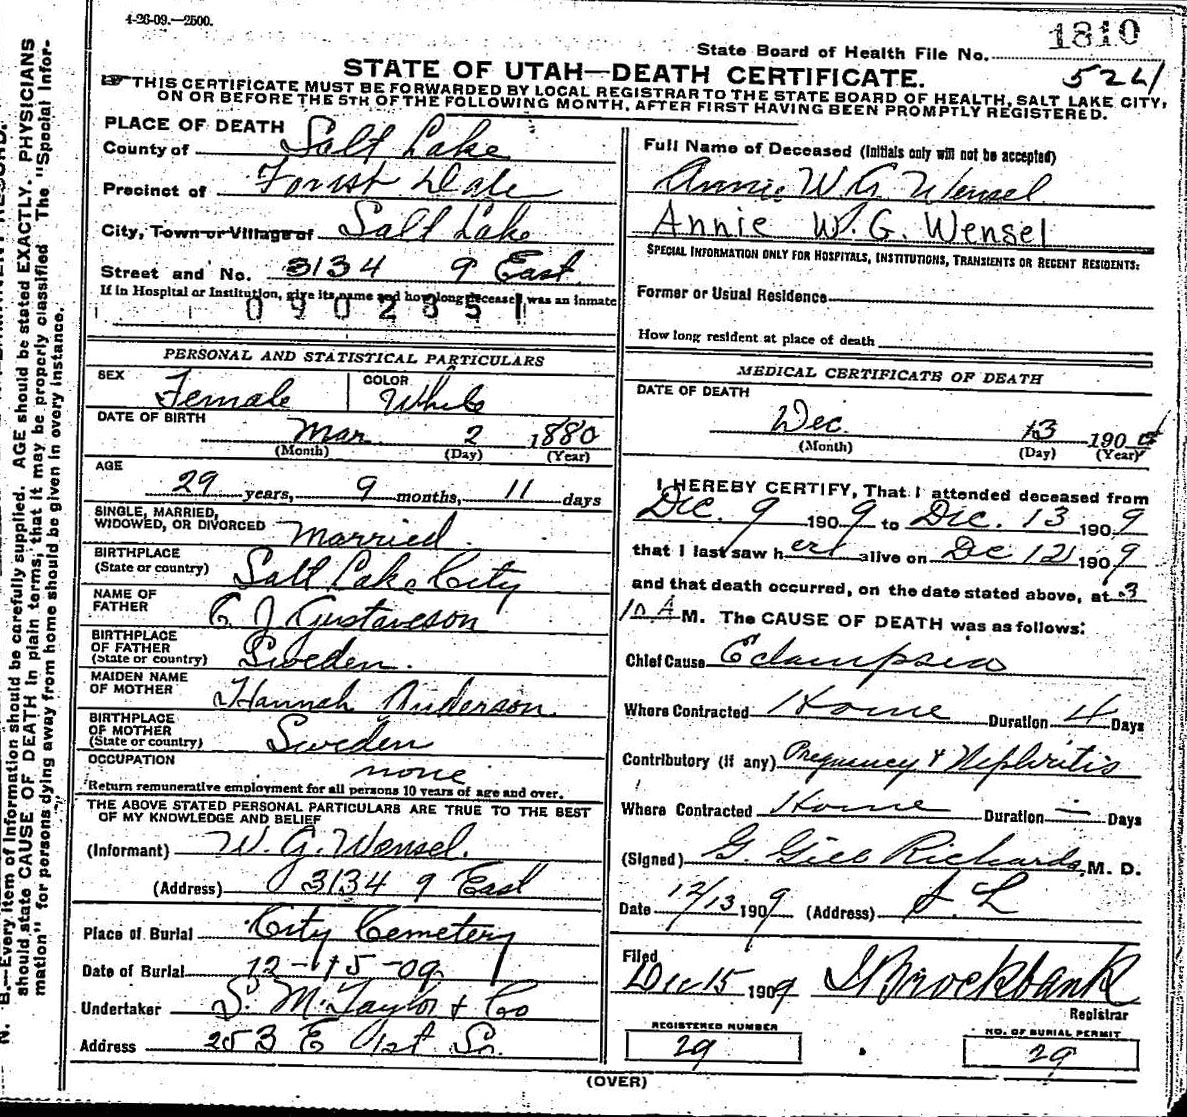 4-26-09.—2500.
1810
State Board of Health File No.
STATE OF UTAH—DEATH CERTIFICATE.
522
THIS CERTIFICATE MUST BE FORWARDED BY LOCAL REGISTRAR TO THE STATE BOARD OF HEALTH, SALT LAKE CITY,
ON OR BEFORE THE 5TH OF THE FOLLOWING MONTH, AFTER FIRST HAVING BEEN PROMPTLY REGISTERED.
PLACE OF DEATH
County of Salt Lake
Precinct of Forest Dale
City, Town or Village of Salt Lake
Street and No. 3134 9 East
If in Hospital or Institution, give its name and how long deceased was an inmate
0902351
PERSONAL AND STATISTICAL PARTICULARS
SEX Female COLOR White
DATE OF BIRTH Mar 2 1880
(Month) (Day) (Year)
AGE
29 years, 9 months, 11 days
SINGLE, MARRIED,
WIDOWED, OR DIVORCED Married
BIRTHPLACE
(State or country) Salt Lake City
NAME OF
FATHER C J Gustaveson
BIRTHPLACE
OF FATHER
(State or country) Sweden.
MAIDEN NAME
OF MOTHER Hannah Anderson.
BIRTHPLACE
OF MOTHER
(State or country) Sweden
OCCUPATION none
Return remunerative employment for all persons 10 years of age and over.
THE ABOVE STATED PERSONAL PARTICULARS ARE TRUE TO THE BEST
OF MY KNOWLEDGE AND BELIEF
(Informant) W. G. Wensel.
(Address) 3134 9 East
Place of Burial City Cemetery
Date of Burial 12-15-09
Undertaker S. M. Taylor & Co
Address 253 E 1st So.
Full Name of Deceased (Initials only will not be accepted)
Annie W. G. Wensel
Annie W. G. Wensel
SPECIAL INFORMATION ONLY FOR HOSPITALS, INSTITUTIONS, TRANSIENTS OR RECENT RESIDENTS:
Former or Usual Residence
How long resident at place of death
MEDICAL CERTIFICATE OF DEATH
DATE OF DEATH
Dec. 13 1909
(Month) (Day) (Year)
I HEREBY CERTIFY, That I attended deceased from
Dec. 9 1909 to Dec. 13 1909
that I last saw her alive on Dec 12 1909
and that death occurred, on the date stated above, at 3
10 A M. The CAUSE OF DEATH was as follows:
Chief Cause Eclampsia
Where Contracted Home Duration 4 Days
Contributory (if any) Pregnancy & Nephritis
Where Contracted Home Duration — Days
(Signed) G. Gill Richards, M. D.
Date 12/13 1909 (Address) S. L
Filed
Dec 15 1909 Brockbank
Registrar
REGISTERED NUMBER
29
NO. OF BURIAL PERMIT
29
(OVER)
N. B.—Every item of Information should be carefully supplied. AGE should be stated EXACTLY. PHYSICIANS
should state CAUSE OF DEATH in plain terms, that it may be properly classified The "Special Infor-
mation" for persons dying away from home should be given in every instance.